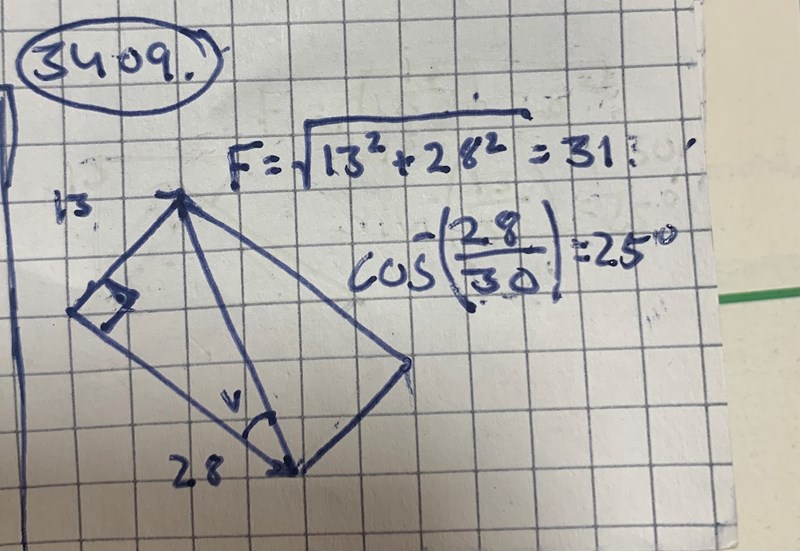 3409.
F = √13² + 28² = 31
13
cos⁻(28/30) = 25°
v
28